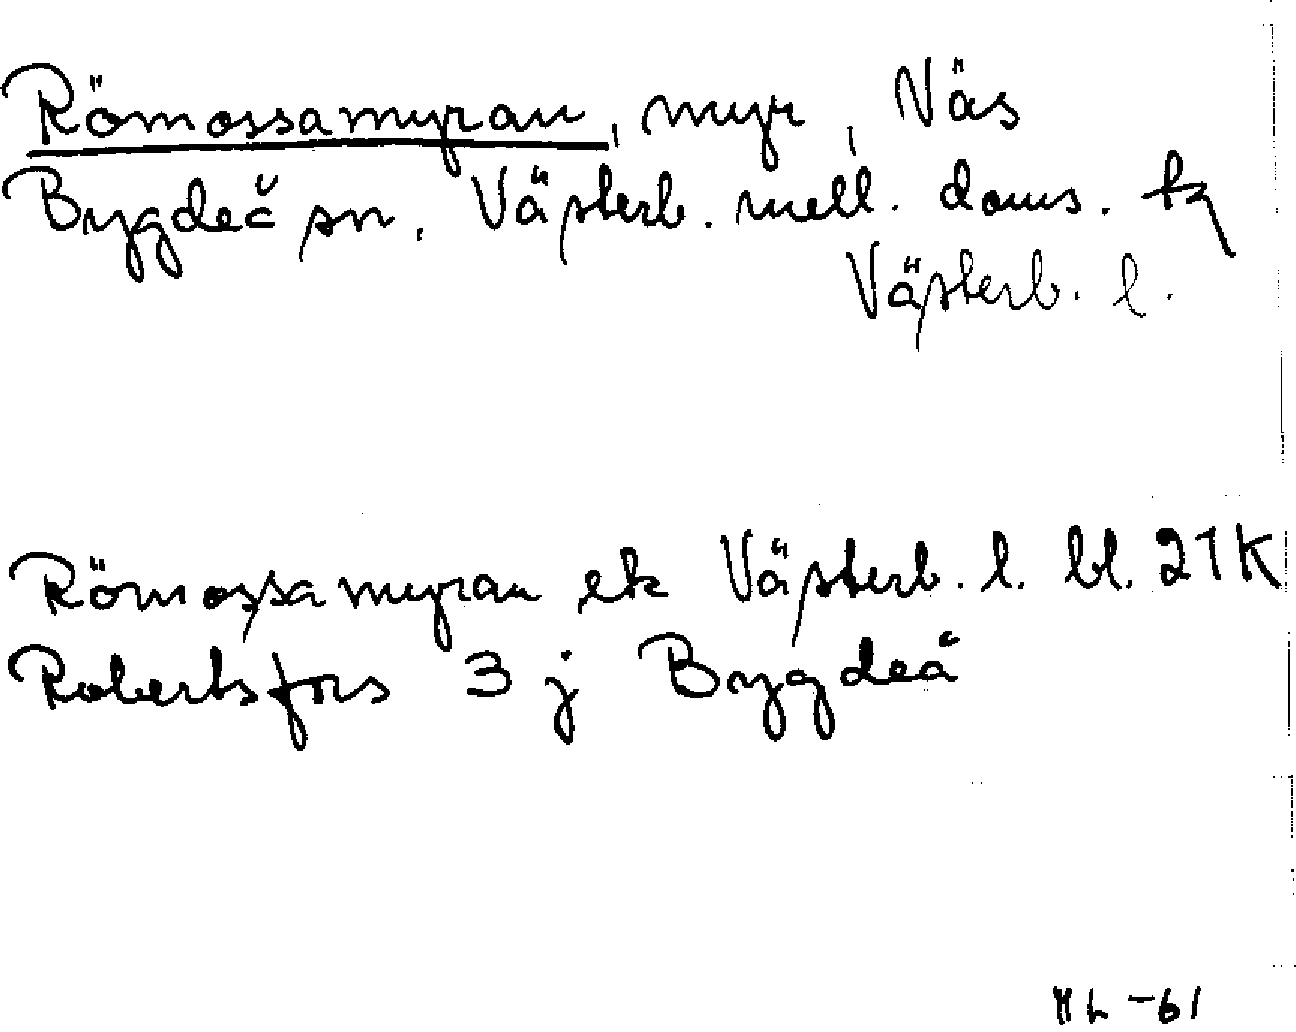 Römossamyran, myr, Näs
Bygdeå sn. Västerb. mell. doms. tg
Västerb. l.
Römossamyran ek Västerb. l. bl. 21K
Robertsfors 3 j Bygdeå
ML -61